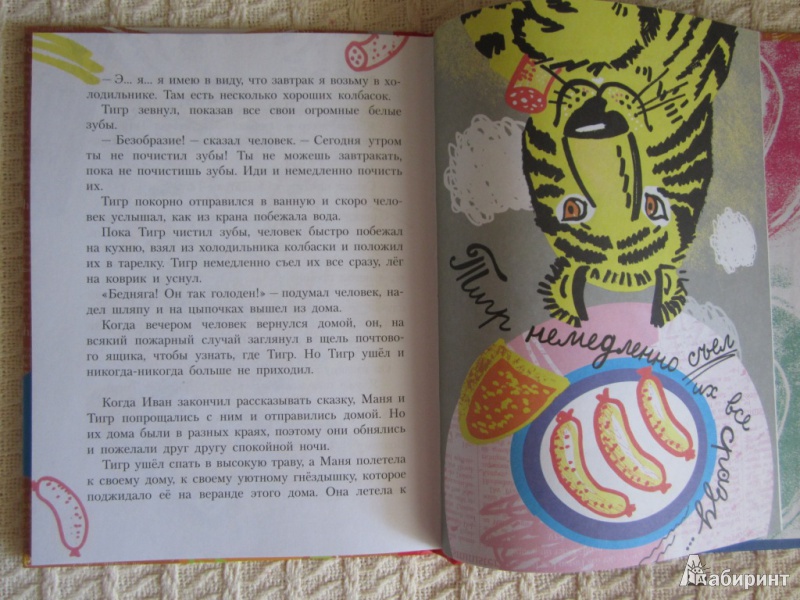 — Э... я... я имею в виду, что завтрак я возьму в хо-
лодильнике. Там есть несколько хороших колбасок.
Тигр зевнул, показав все свои огромные белые
зубы.
— Безобразие! — сказал человек. — Сегодня утром
ты не почистил зубы! Ты не можешь завтракать,
пока не почистишь зубы. Иди и немедленно почисть
их.
Тигр покорно отправился в ванную и скоро чело-
век услышал, как из крана побежала вода.
Пока Тигр чистил зубы, человек быстро побежал
на кухню, взял из холодильника колбаски и положил
их в тарелку. Тигр немедленно съел их все сразу, лёг
на коврик и уснул.
«Бедняга! Он так голоден!» — подумал человек, на-
дел шляпу и на цыпочках вышел из дома.
Когда вечером человек вернулся домой, он, на
всякий пожарный случай заглянул в щель почто-
вого ящика, чтобы узнать, где Тигр. Но Тигр ушёл и
никогда-никогда больше не приходил.
Когда Иван закончил рассказывать сказку, Маня и
Тигр попрощались с ним и отправились домой. Но
их дома были в разных краях, поэтому они обнялись
и пожелали друг другу спокойной ночи.
Тигр ушёл спать в высокую траву, а Маня полетела
к своему дому, к своему уютному гнёздышку, которое
поджидало её на веранде этого дома. Она летела к
Тигр немедленно съел
их все сразу...
Лабиринт